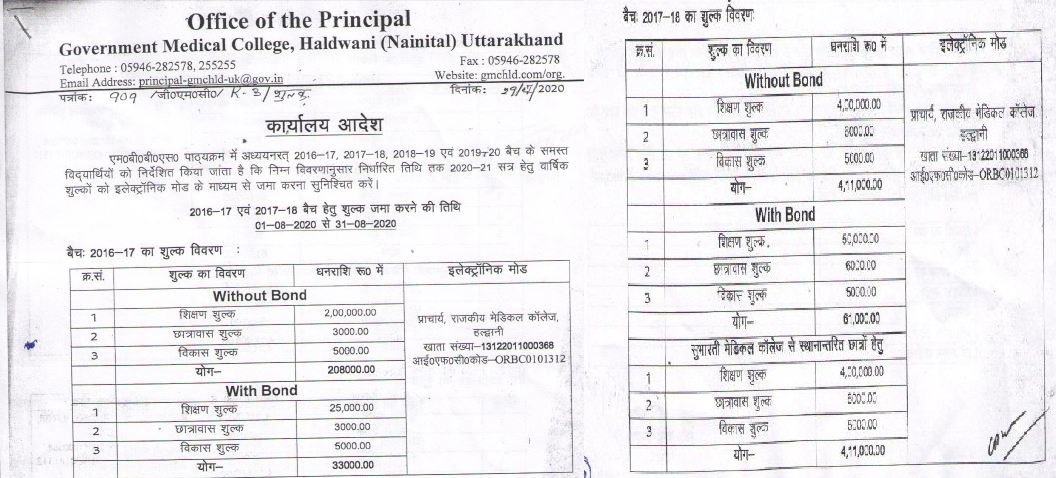 Office of the Principal
Government Medical College, Haldwani (Nainital) Uttarakhand
Telephone : 05946-282578, 255255
Fax : 05946-282578
Email Address: principal-gmchld-uk@gov.in
Website: gmchld.com/org.
पत्रांकः 909 /जी०एम०सी०/ K-3/शुल्क
दिनांकः 29/07/2020
कार्यालय आदेश
एम०बी०बी०एस० पाठ्यक्रम में अध्ययनरत् 2016-17, 2017-18, 2018-19 एवं 2019-20 बैच के समस्त
विद्यार्थियों को निर्देशित किया जांता है कि निम्न विवरणानुसार निर्धारित तिथि तक 2020-21 सत्र हेतु वार्षिक
शुल्कों को इलेक्ट्रॉनिक मोड के माध्यम से जमा करना सुनिश्चित करें।
2016-17 एवं 2017-18 बैच हेतु शुल्क जमा करने की तिथि
01-08-2020 से 31-08-2020
बैचः 2016-17 का शुल्क विवरण :
क्र.सं. शुल्क का विवरण धनराशि रू0 में इलेक्ट्रॉनिक मोड
Without Bond
1 शिक्षण शुल्क 2,00,000.00
2 छात्रावास शुल्क 3000.00
3 विकास शुल्क 5000.00
योग– 208000.00
With Bond
1 शिक्षण शुल्क 25,000.00
2 छात्रावास शुल्क 3000.00
3 विकास शुल्क 5000.00
योग– 33000.00
प्राचार्य, राजकीय मेडिकल कॉलेज,
हल्द्वानी
खाता संख्या–13122011000368
आई०एफ०सी०कोड–ORBC0101312
बैचः 2017-18 का शुल्क विवरणः
क्र.सं. शुल्क का विवरण धनराशि रू0 में इलेक्ट्रॉनिक मोड
Without Bond
1 शिक्षण शुल्क 4,00,000.00
2 छात्रावास शुल्क 6000.00
3 विकास शुल्क 5000.00
योग– 4,11,000.00
With Bond
1 शिक्षण शुल्क. 50,000.00
2 छात्रावास शुल्क 6000.00
3 विकास शुल्क 5000.00
योग– 61,000.00
सुभारती मेडिकल कॉलेज से स्थानान्तरित छात्रों हेतु
1 शिक्षण शुल्क 4,00,000.00
2 छात्रावास शुल्क 6000.00
3 विकास शुल्क 5000.00
योग– 4,11,000.00
प्राचार्य, राजकीय मेडिकल कॉलेज,
हल्द्वानी
खाता संख्या–13122011000368
आई०एफ०सी०कोड–ORBC0101312